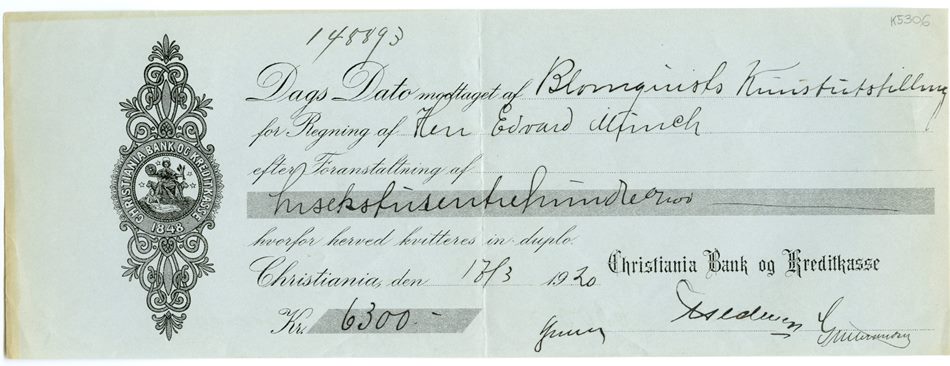 K5306
148893
Dags Dato modtaget af Blomqvists Kunstutstilling
for Regning af Herr Edvard Münch
efter Foranstaltning af
hvorfor herved kvitteres in duplo.
Christiania, den 18/3 1920 Christiania Bank og Kreditkasse
Kr. 6300.-
CHRISTIANIA BANK OG KREDITKASSE
1848